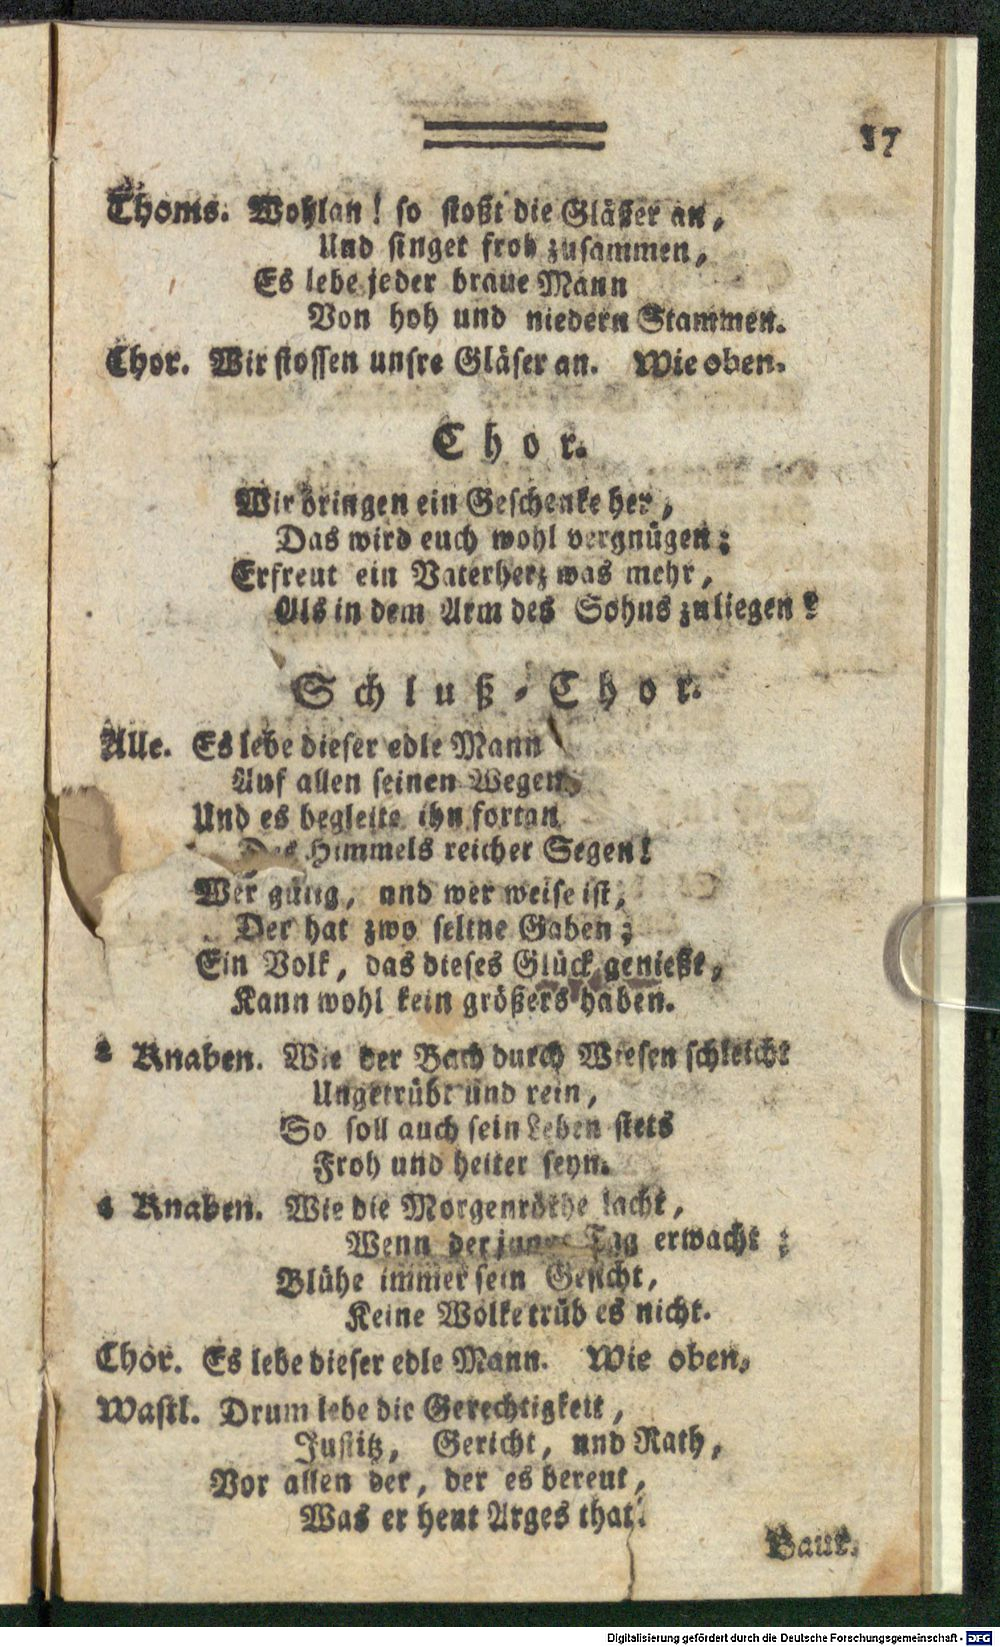 17
Thoms. Wohlan! so stoßt die Gläßer an,
Und singet froh zusammen,
Es lebe jeder brave Mann
Von hoh und niedern Stammen.
Chor. Wir stossen unsre Gläser an. Wie oben.
Chor.
Wir bringen ein Geschenke her,
Das wird euch wohl vergnügen;
Erfreut ein Vaterherz was mehr,
Als in dem Arm des Sohns zuliegen?
Schluß-Chor.
Alle. Es lebe dieser edle Mann
Auf allen seinen Wegen,
Und es begleite ihn fortan
Des Himmels reicher Segen!
Wer gütig, und wer weise ist,
Der hat zwo seltne Gaben;
Ein Volk, das dieses Glück genießt,
Kann wohl kein größers haben.
2 Knaben. Wie der Bach durch Wiesen schleicht
Ungetrübt und rein,
So soll auch sein Leben stets
Froh und heiter seyn.
4 Knaben. Wie die Morgenröthe lacht,
Wenn der junge Tag erwacht;
Blühe immer sein Gesicht,
Keine Wolke trüb es nicht.
Chor. Es lebe dieser edle Mann. Wie oben.
Wastl. Drum lebe die Gerechtigkeit,
Justitz, Gericht, und Rath,
Vor allen der, der es bereut,
Was er heut Arges that.
Baur.
Digitalisierung gefördert durch die Deutsche Forschungsgemeinschaft - DFG